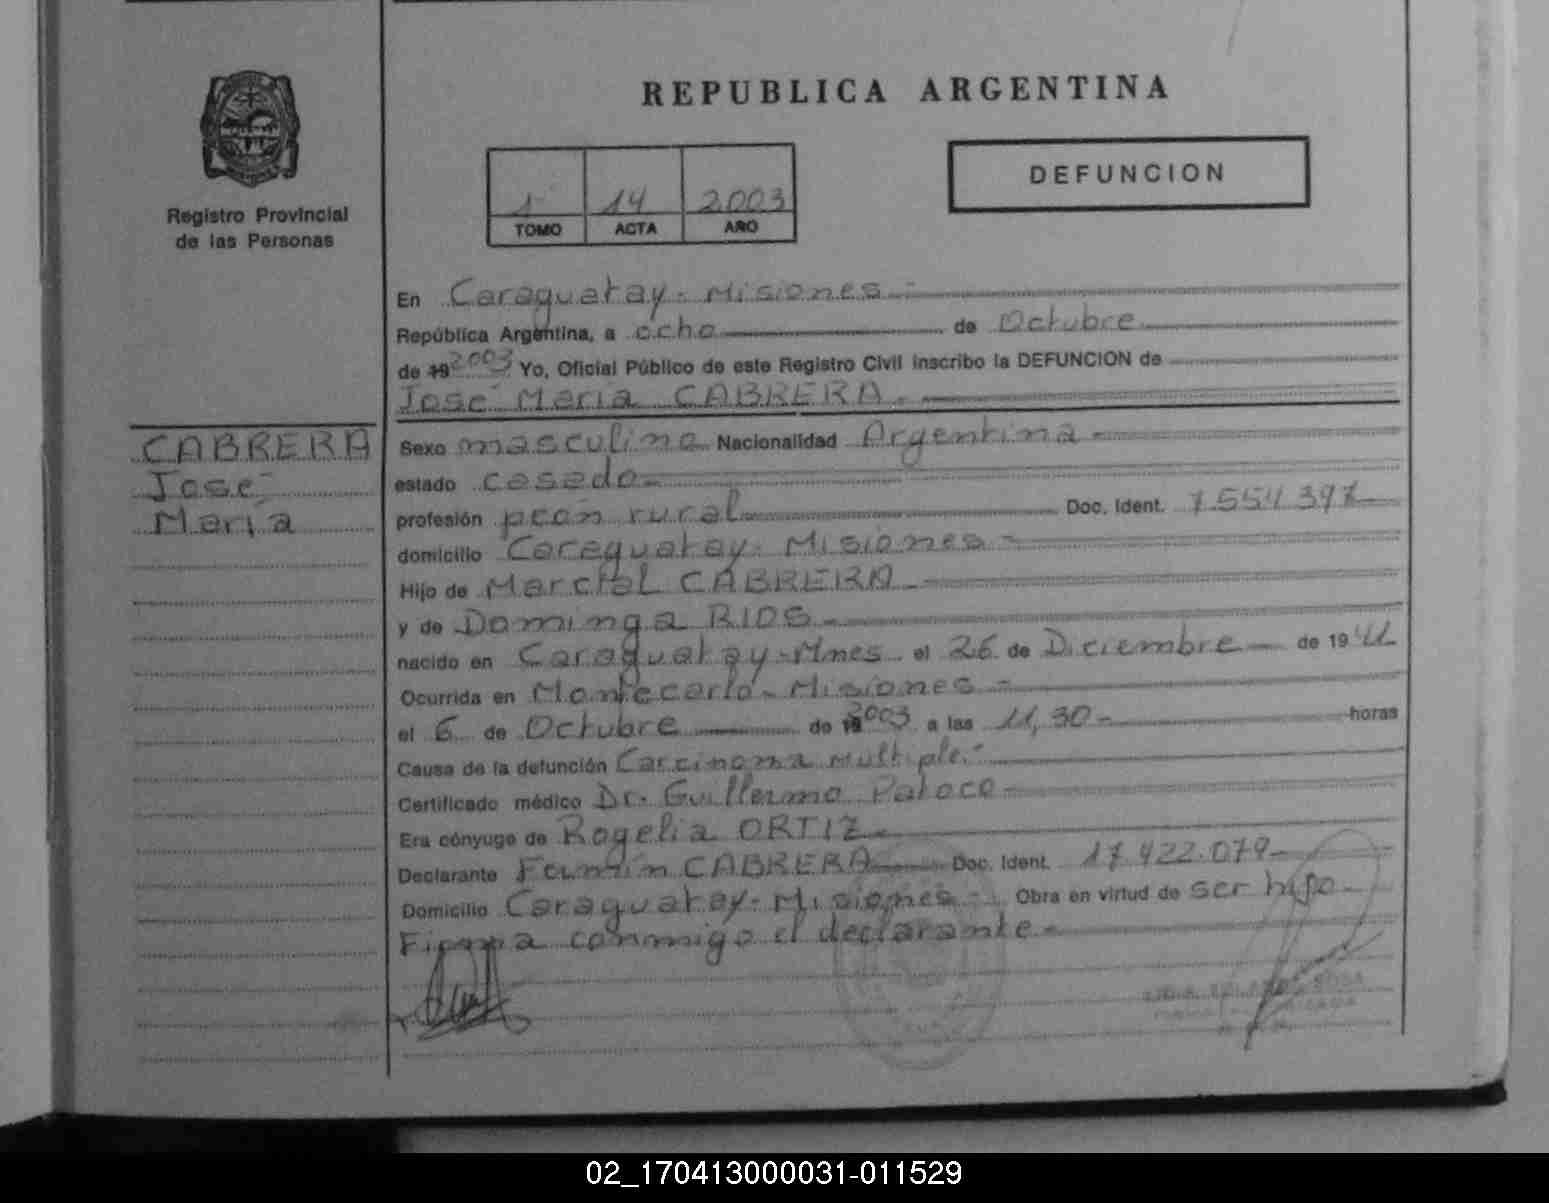 REPUBLICA ARGENTINA
Registro Provincial
de las Personas
1 14 2003
TOMO ACTA AÑO
DEFUNCION
CABRERA
José
María
En Caraguatay - Misiones -
República Argentina, a ocho de Octubre
de 19 2003 Yo, Oficial Público de este Registro Civil inscribo la DEFUNCION de
José María CABRERA.
Sexo masculino Nacionalidad Argentina
estado casado
profesión peón rural Doc. Ident. 7.554.397
domicilio Caraguatay - Misiones -
Hijo de Marcial CABRERA
y de Dominga RIOS
nacido en Caraguatay - Mnes el 26 de Diciembre de 19
Ocurrida en Montecarlo - Misiones -
el 6 de Octubre de 19 2003 a las 11,30 - horas
Causa de la defunción Carcinoma Multiple.-
Certificado médico Dr. Guillermo
Era cónyuge de Rogelia ORTIZ
Declarante CABRERA Doc. Ident. 17.422.079
Domicilio Caraguatay - Misiones - Obra en virtud de ser hijo
Firma conmigo el declarante -
02_170413000031-011529